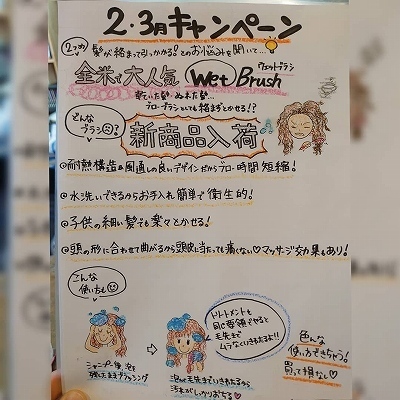 2・3月キャンペーン
2つめ
髪が絡まって引っかかる!とのお悩みを聞いて…
全米で大人気 Wet Brush
ウェットブラシ
乾いた髪 ぬれた髪
ブローブラシとしても絡まずとかせる!?
どんなブラシ
新商品入荷
耐熱構造&風通しの良いデザインだからブロー時間短縮!
水洗いできるからお手入れ簡単で衛生的!
子供の細い髪でも楽々とかせる!
頭の形に合わせて曲がるから頭皮に当たっても痛くない♡マッサージ効果もあり!
こんな
使い方も
シャンプー後、泡を
残したままブラッシング
泡が毛先まで行きわたるから
汚れがしっかりおちる♡
トリートメントも
同じ要領でやると
毛先まで
ムラなくいきわたるよ!!
色んな
使い方できちゃう!
買って損なし♡